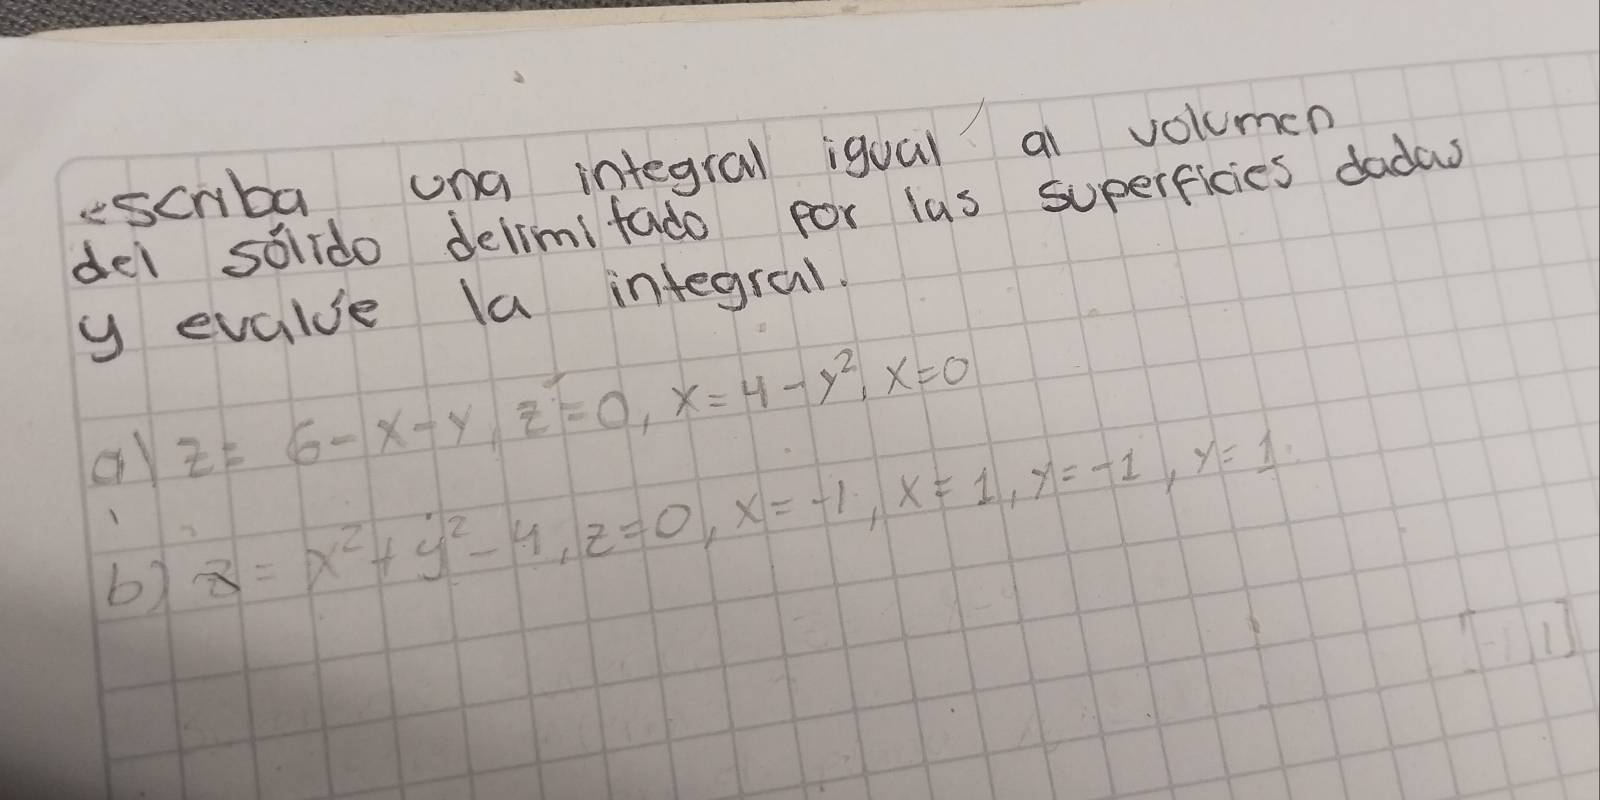 escriba una integral igual al volumen
del sólido delimitado por las superficies dadas
y evalúe la integral.
a) z = 6-x-y, z=0, x=4-y², x=0
b) z = x²+y²-4, z=0, x=-1, x=1, y=-1, y=1.